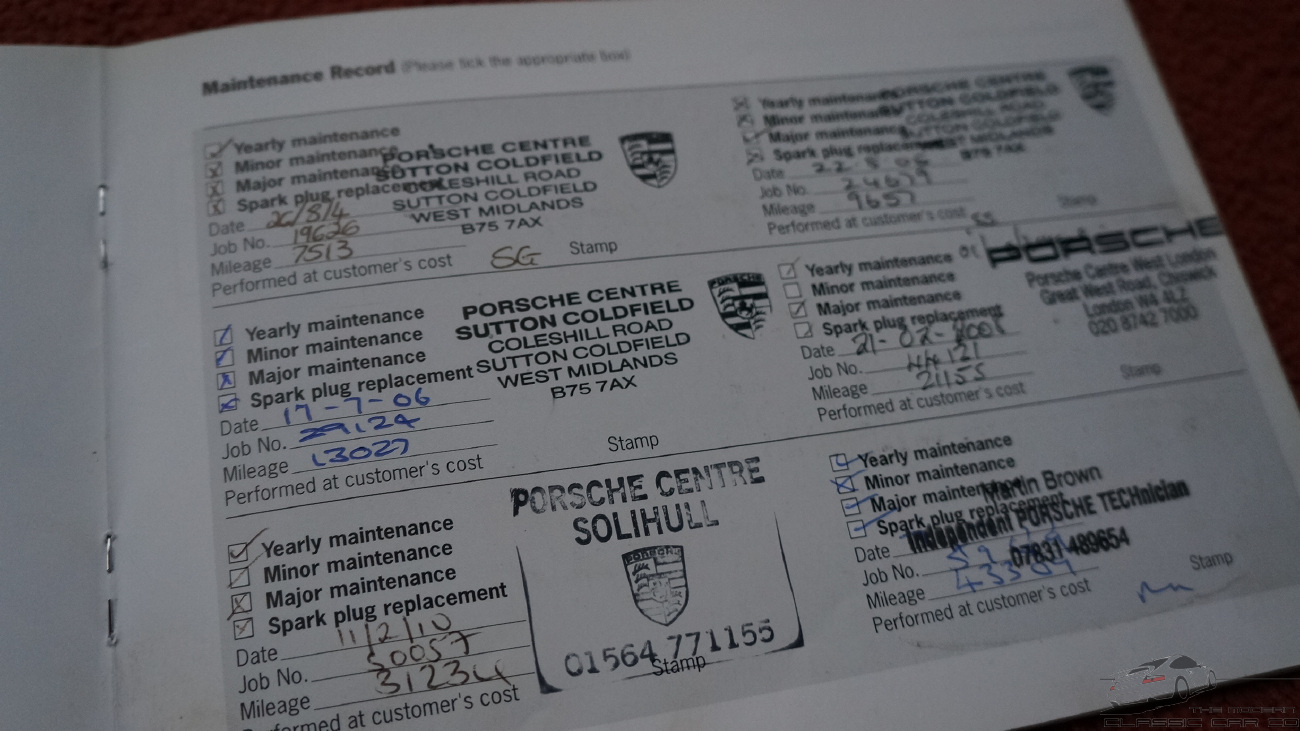 Maintenance Record (Please tick the appropriate box)
Yearly maintenance
Minor maintenance
Major maintenance
Spark plug replacement
Date
Job No. 19626
Mileage 7513
Performed at customer's cost
SG
Stamp
PORSCHE CENTRE
SUTTON COLDFIELD
COLESHILL ROAD
SUTTON COLDFIELD
WEST MIDLANDS
B75 7AX
Yearly maintenance
Minor maintenance
Major maintenance
Spark plug replacement
Date
Job No. 24679
Mileage 9657
Performed at customer's cost
Stamp
PORSCHE CENTRE
SUTTON COLDFIELD
COLESHILL ROAD
SUTTON COLDFIELD
WEST MIDLANDS
B75 7AX
Yearly maintenance
Minor maintenance
Major maintenance
Spark plug replacement
Date 17-7-06
Job No. 29124
Mileage 13027
Performed at customer's cost
Stamp
PORSCHE CENTRE
SUTTON COLDFIELD
COLESHILL ROAD
SUTTON COLDFIELD
WEST MIDLANDS
B75 7AX
Yearly maintenance
Minor maintenance
Major maintenance
Spark plug replacement
Date 21-02-2008
Job No. 44121
Mileage 21155
Performed at customer's cost
Stamp
PORSCHE
Porsche Centre West London
Great West Road, Chiswick
London W4 4LZ
020 8742 7000
Yearly maintenance
Minor maintenance
Major maintenance
Spark plug replacement
Date 11/2/10
Job No. 50057
Mileage 31234
Performed at customer's cost
PORSCHE CENTRE
SOLIHULL
PORSCHE
01564 771155
Stamp
Yearly maintenance
Minor maintenance
Major maintenance
Spark plug replacement
Date
Job No.
Mileage
Performed at customer's cost
Stamp
Martin Brown
Independent PORSCHE TECHnician
07831 489654
THE MODERN
CLASSIC CAR CO